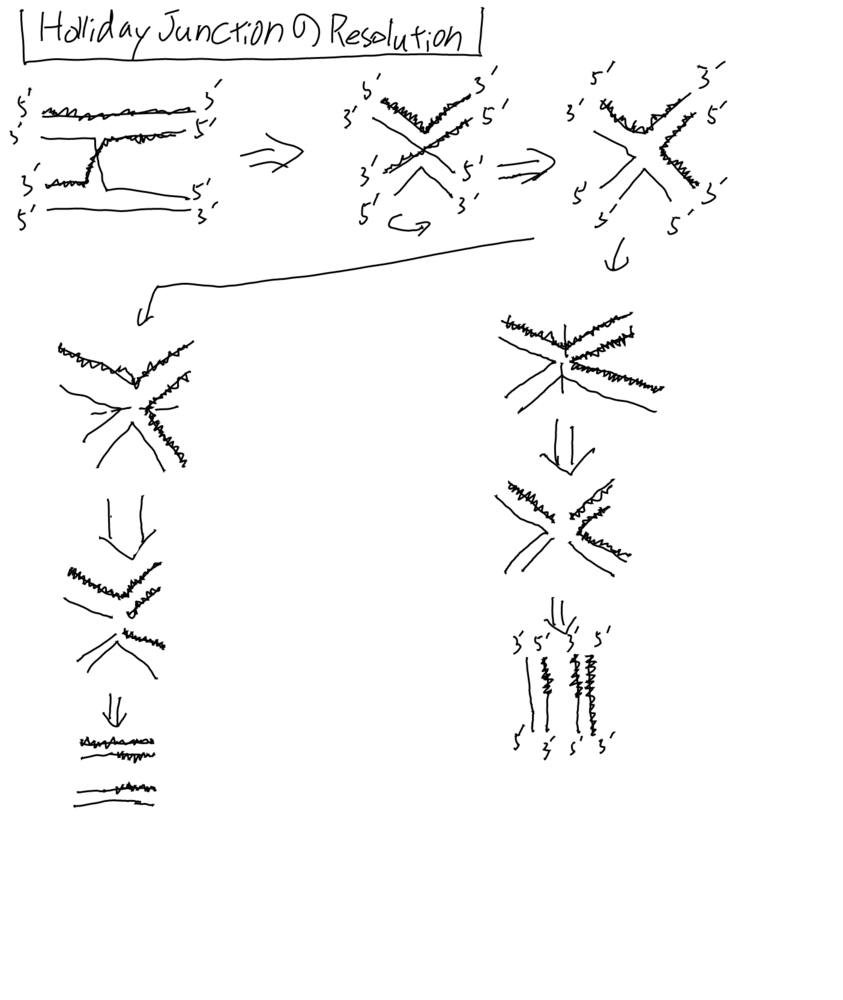 Holliday Junction の Resolution
5' 3'
3' 5'
3' 5'
5' 3'
5' 3'
3' 5'
3' 5'
5' 3'
5' 3'
3' 5'
5' 3'
3' 5'
3' 5' 3' 5'
5' 3' 5' 3'